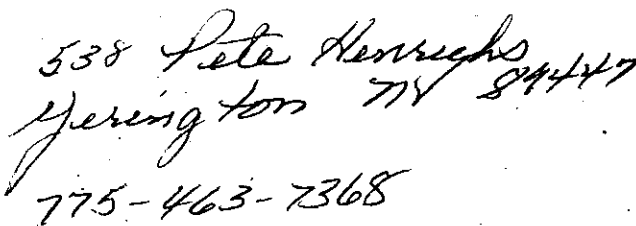 538 Pete Henrichs
Yerington NV 89447
775-463-7368